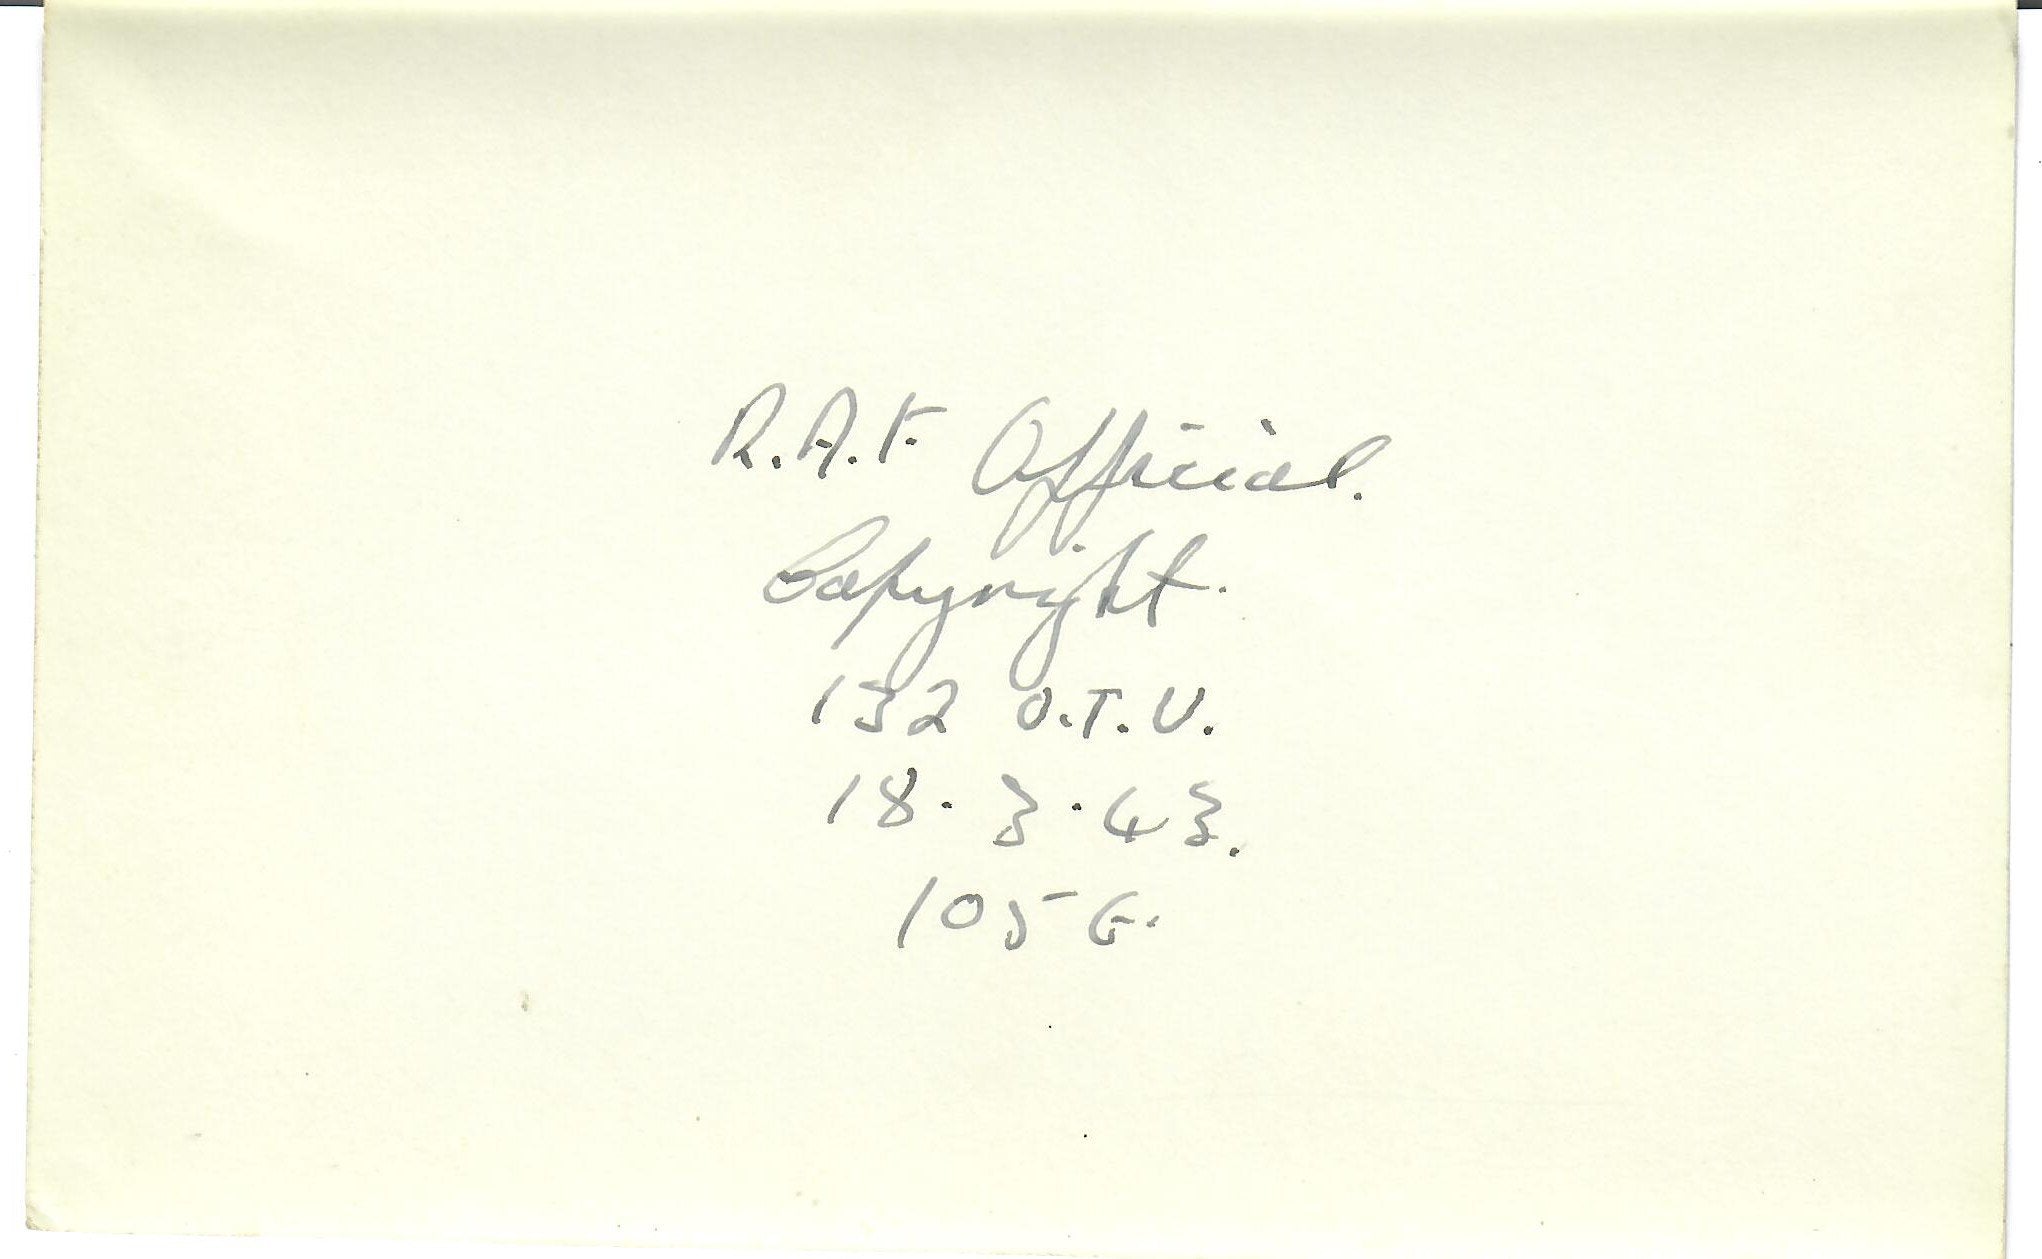 R.A.F. Official.
Copyright.
132 O.T.U.
18.3.43.
105 G.